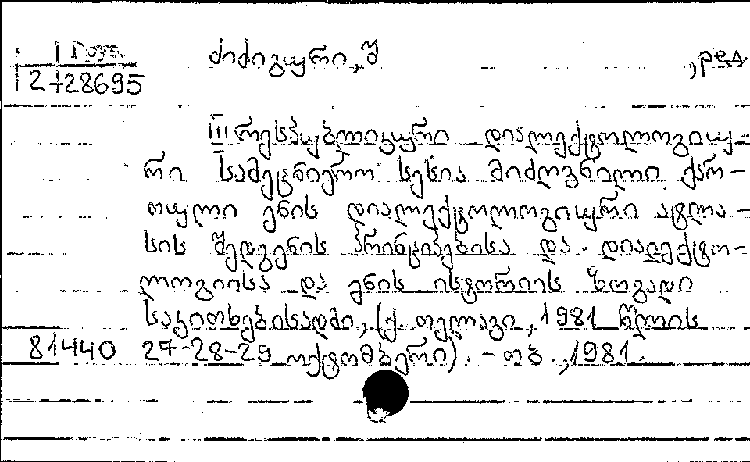 ძიძიგური, შ ,ред
2-28695
III რესპუბლიკური დიალექტოლოგიუ-
რი სამეცნიერო სესია მიძღვნილი ქარ-
თული ენის დიალექტოლოგიური ატლა-
სის შედგენის პრინციპებისა და დიალექტო-
ლოგიისა და ენის ისტორიის ზოგადი
საკითხებისადმი, (ქ. თელავი, 1981 წლის
81440 27-28-29 ოქტომბერი). - თბ., 1981.